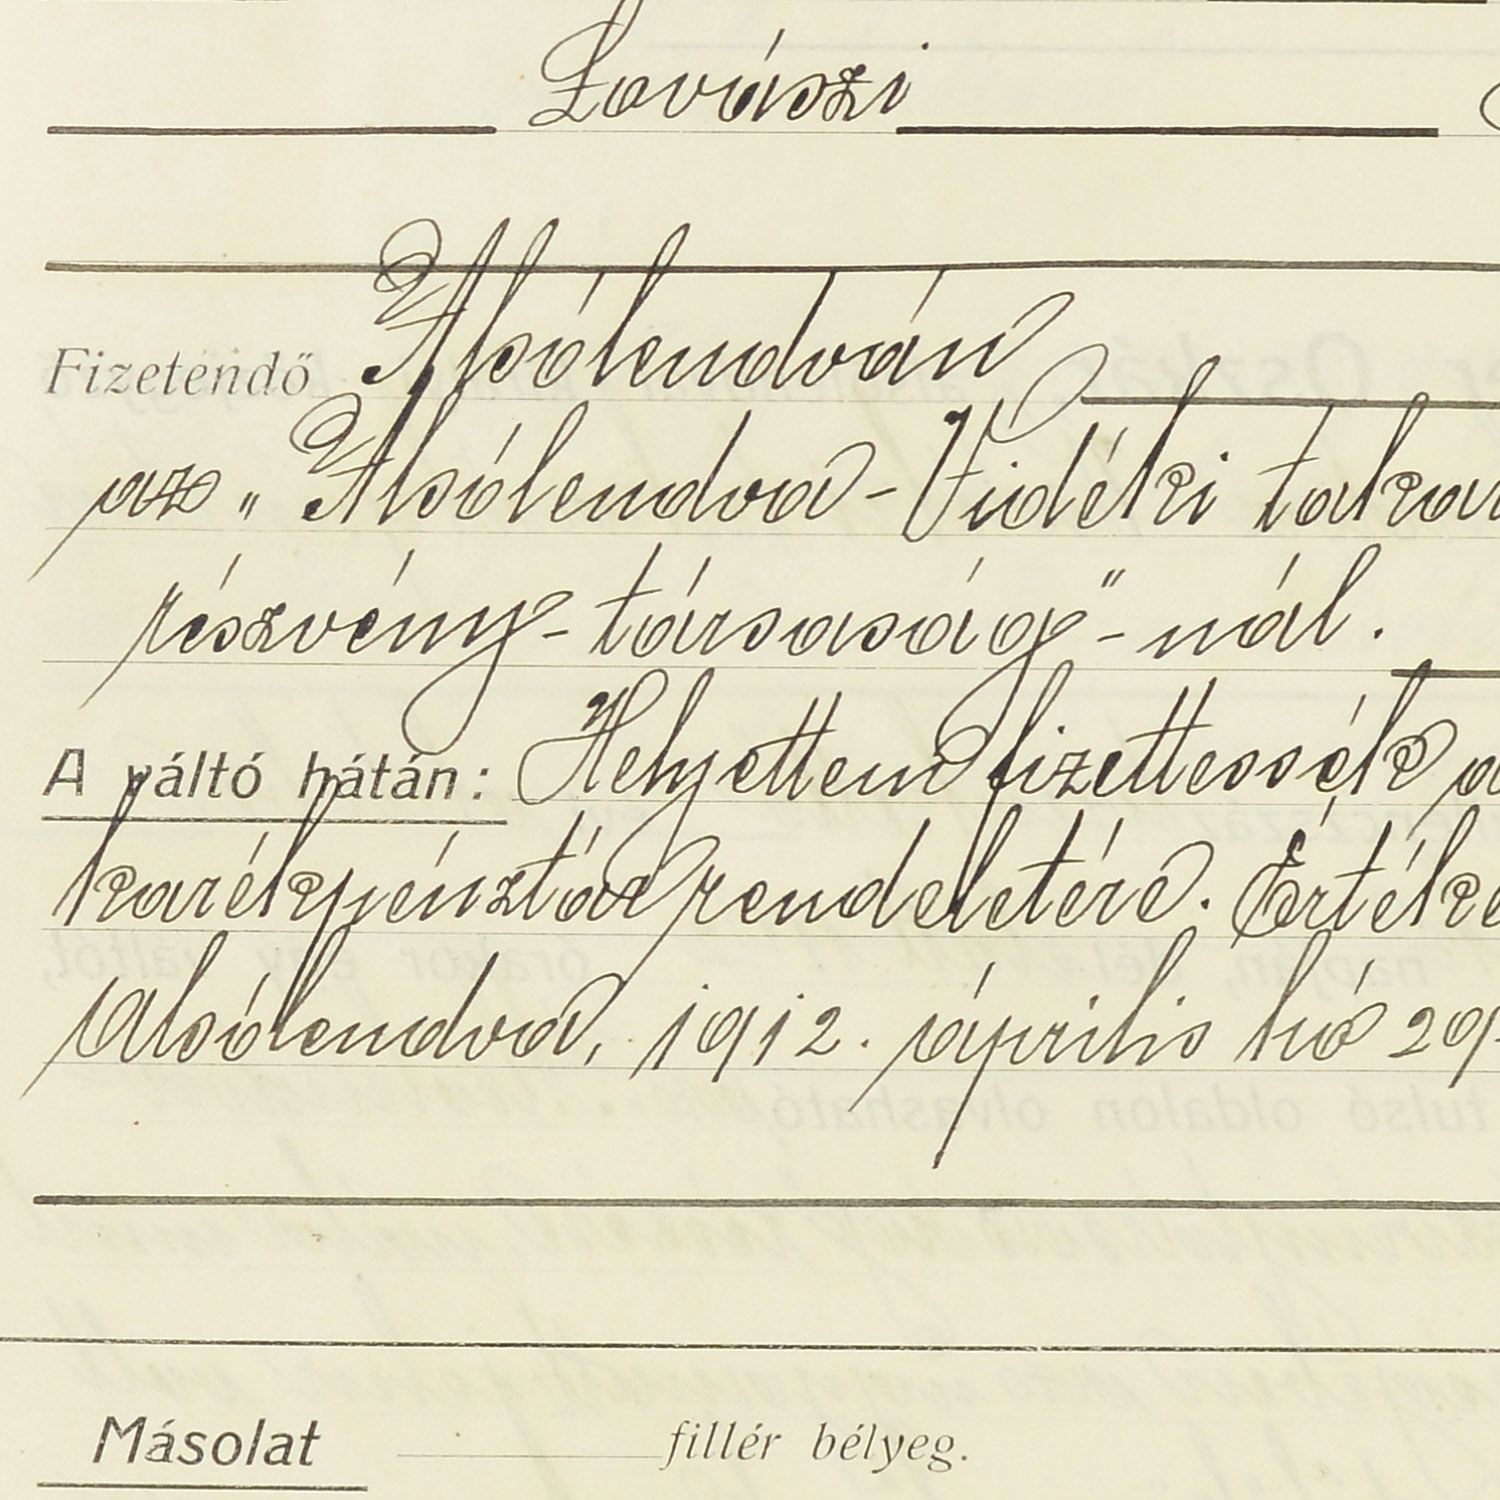 Lovászi
Fizetendő Alsólendván
az „Alsólendva-Vidéki takar
részvény-társaság"-nál.
A váltó hátán: Helyettem fizettessék a
karékpénztár rendeletére. Értéke
Alsólendva, 1912. április hó 29.
Másolat fillér bélyeg.